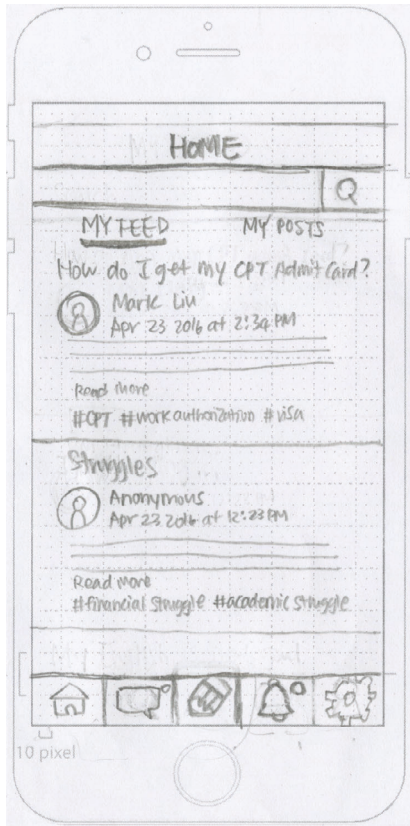 HOME
MY FEED MY POSTS
How do I get my CPT Admit Card?
Mark Liu
Apr 23 2016 at 2:34 PM
Read More
#CPT #work authorization #visa
Struggles
Anonymous
Apr 23 2016 at 12:23 PM
Read more
#financial struggle #academic struggle
10 pixel